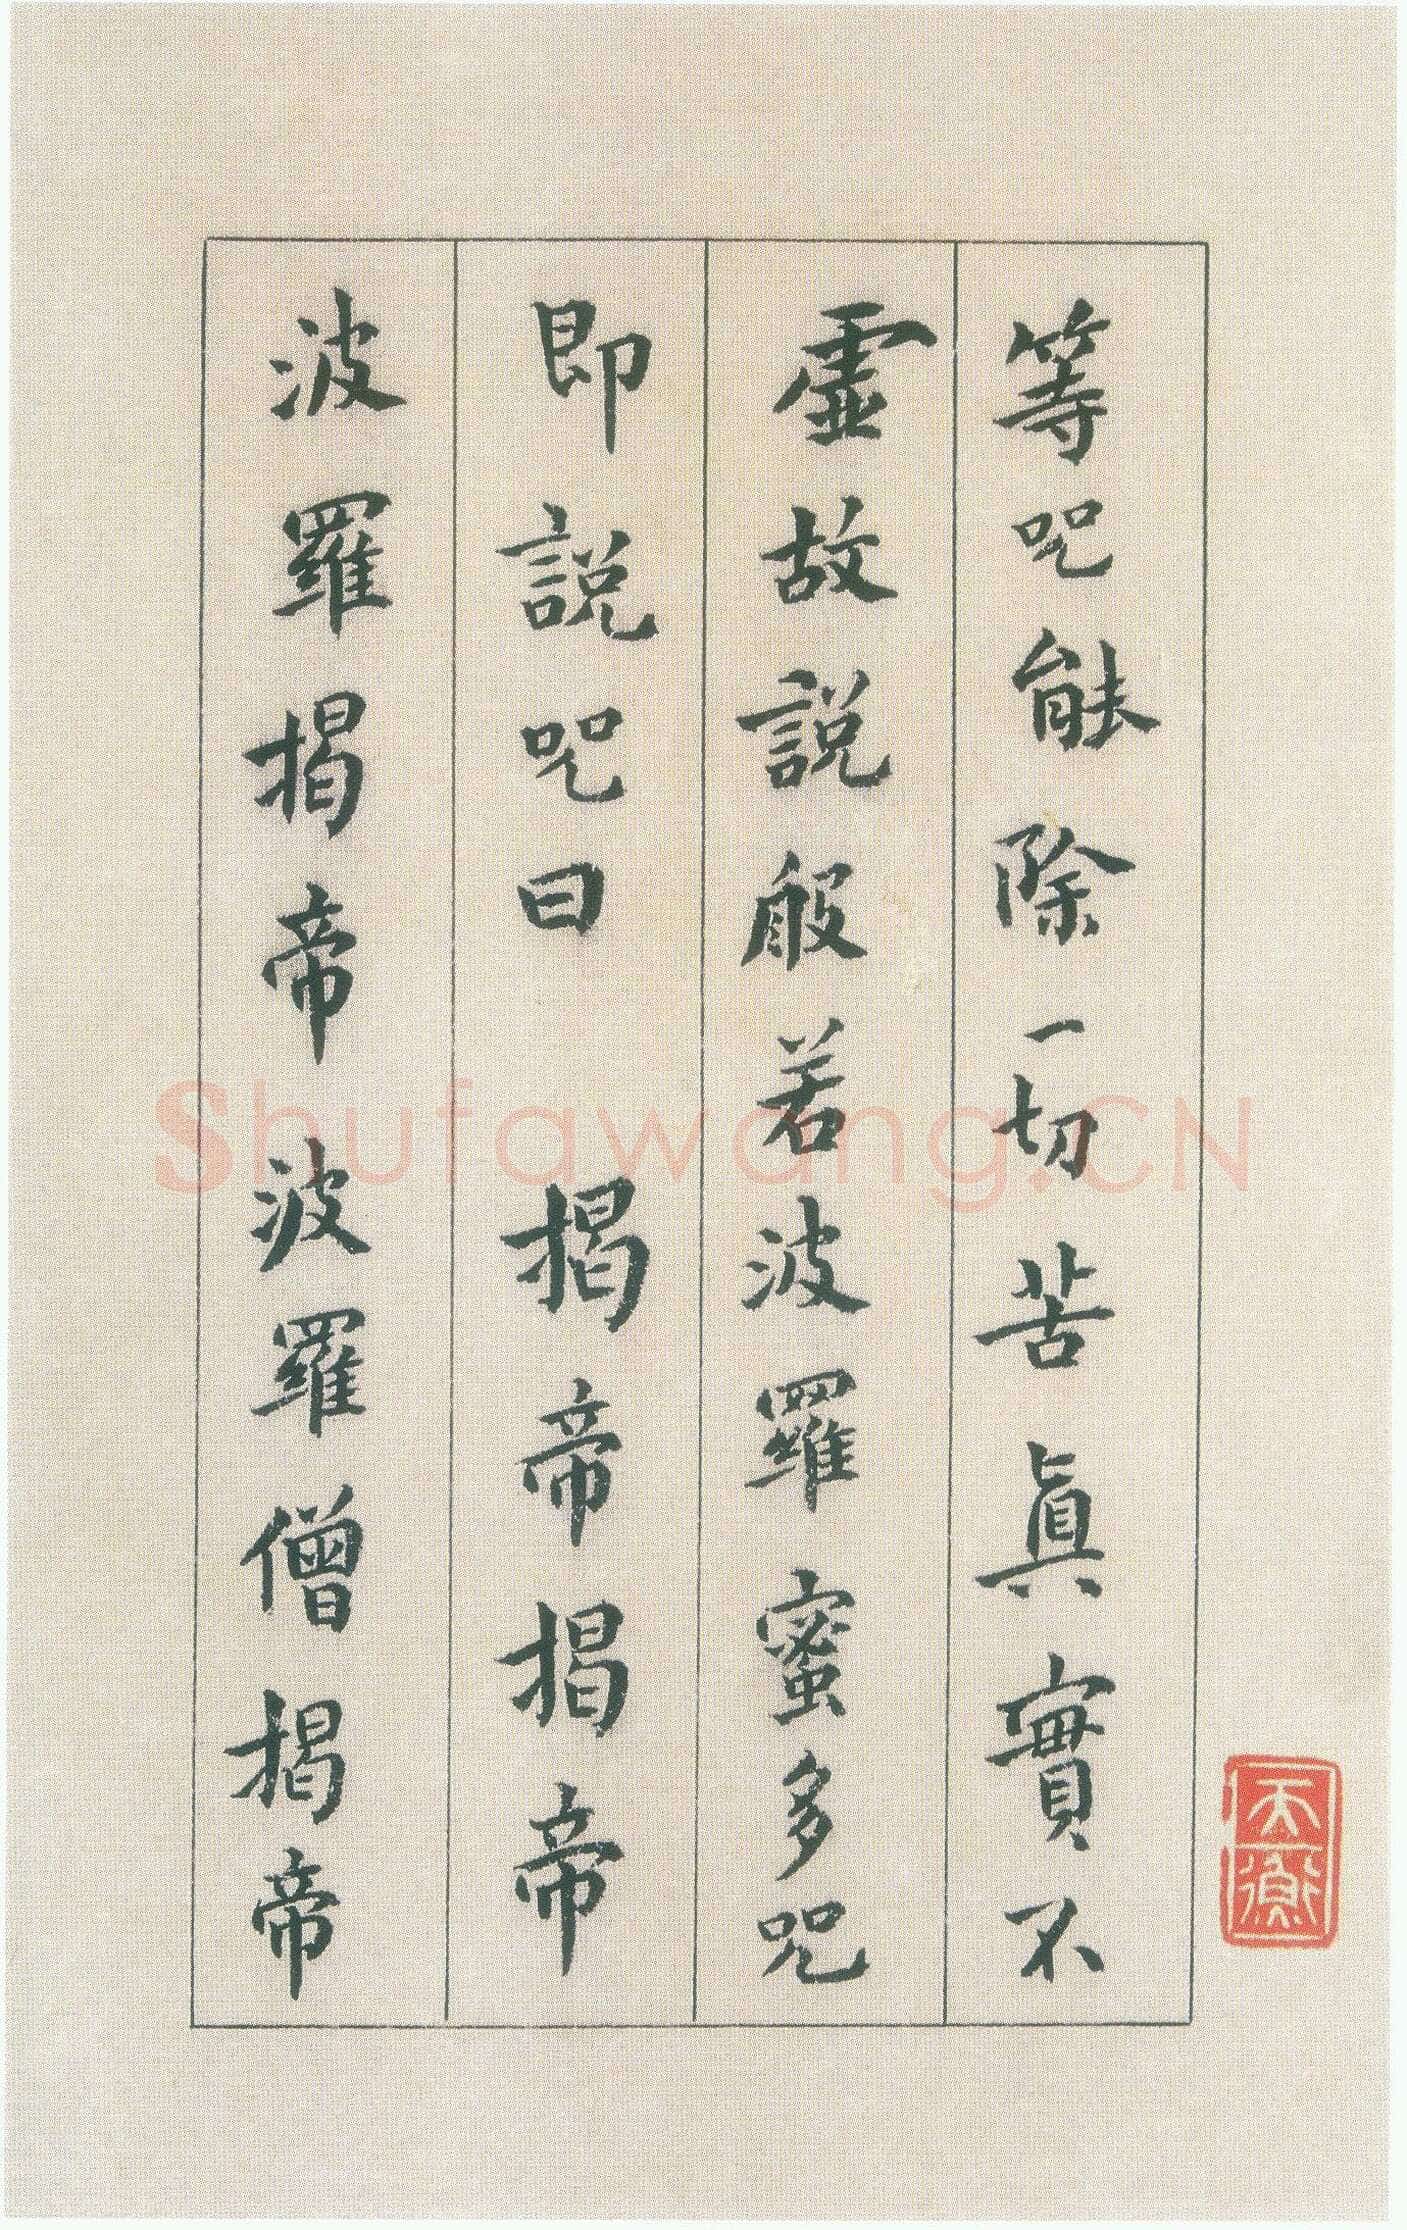 等咒能除一切苦眞實不
虛故說般若波羅蜜多咒
即說咒曰 揭帝揭帝
波羅揭帝波羅僧揭帝
天衡
Shufawang.CN